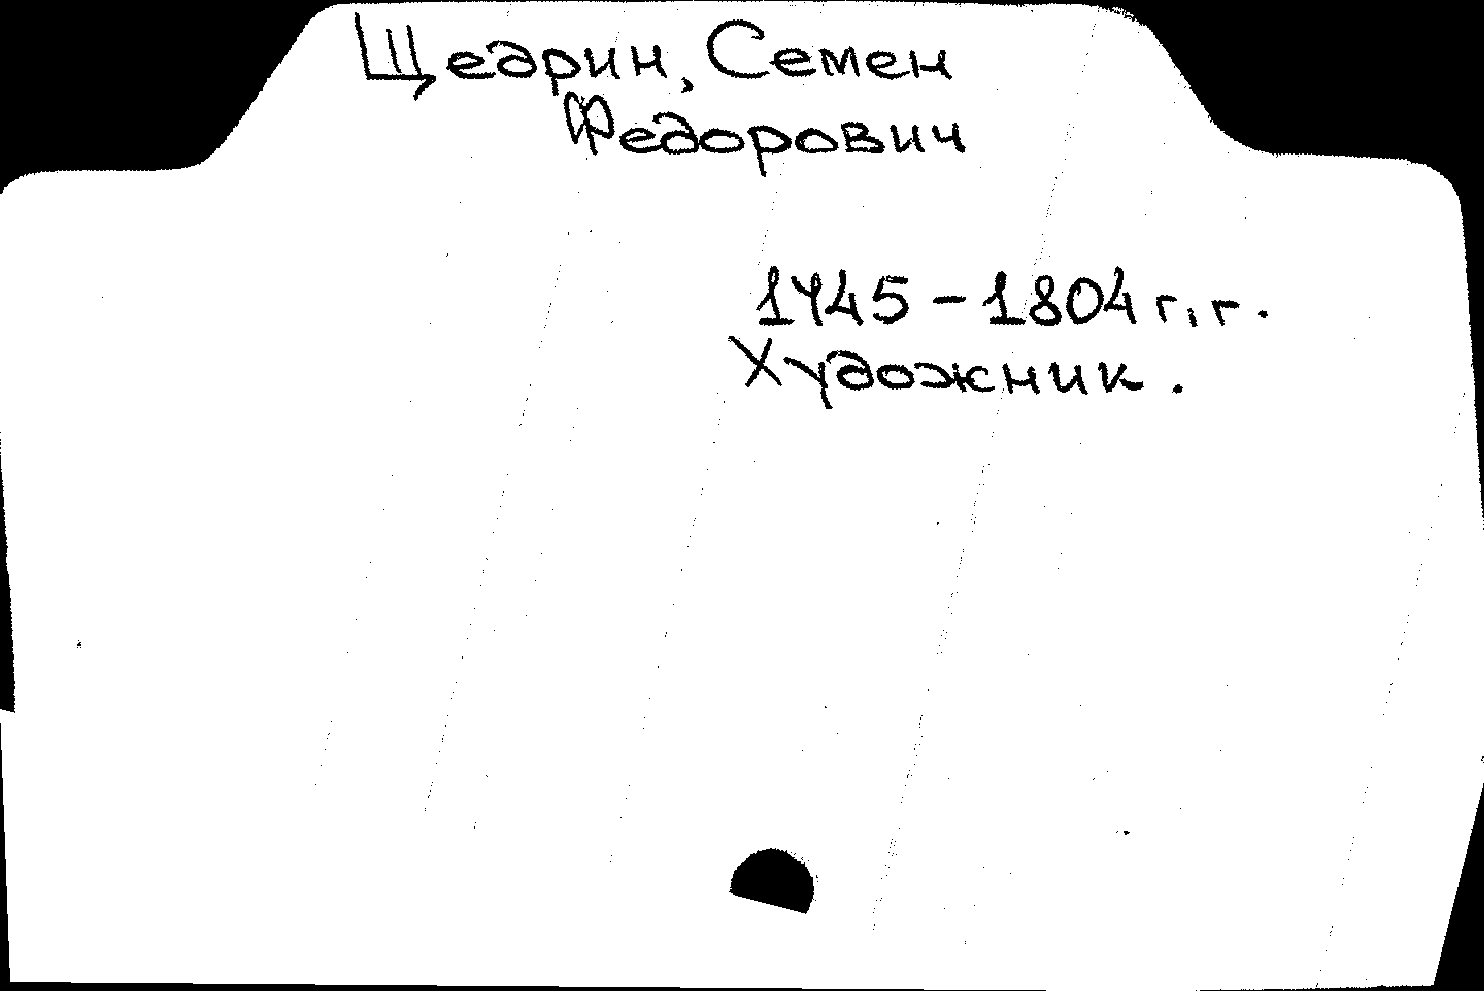 Щедрин, Семен
Федорович
1745 – 1804 г.г.
Художник.